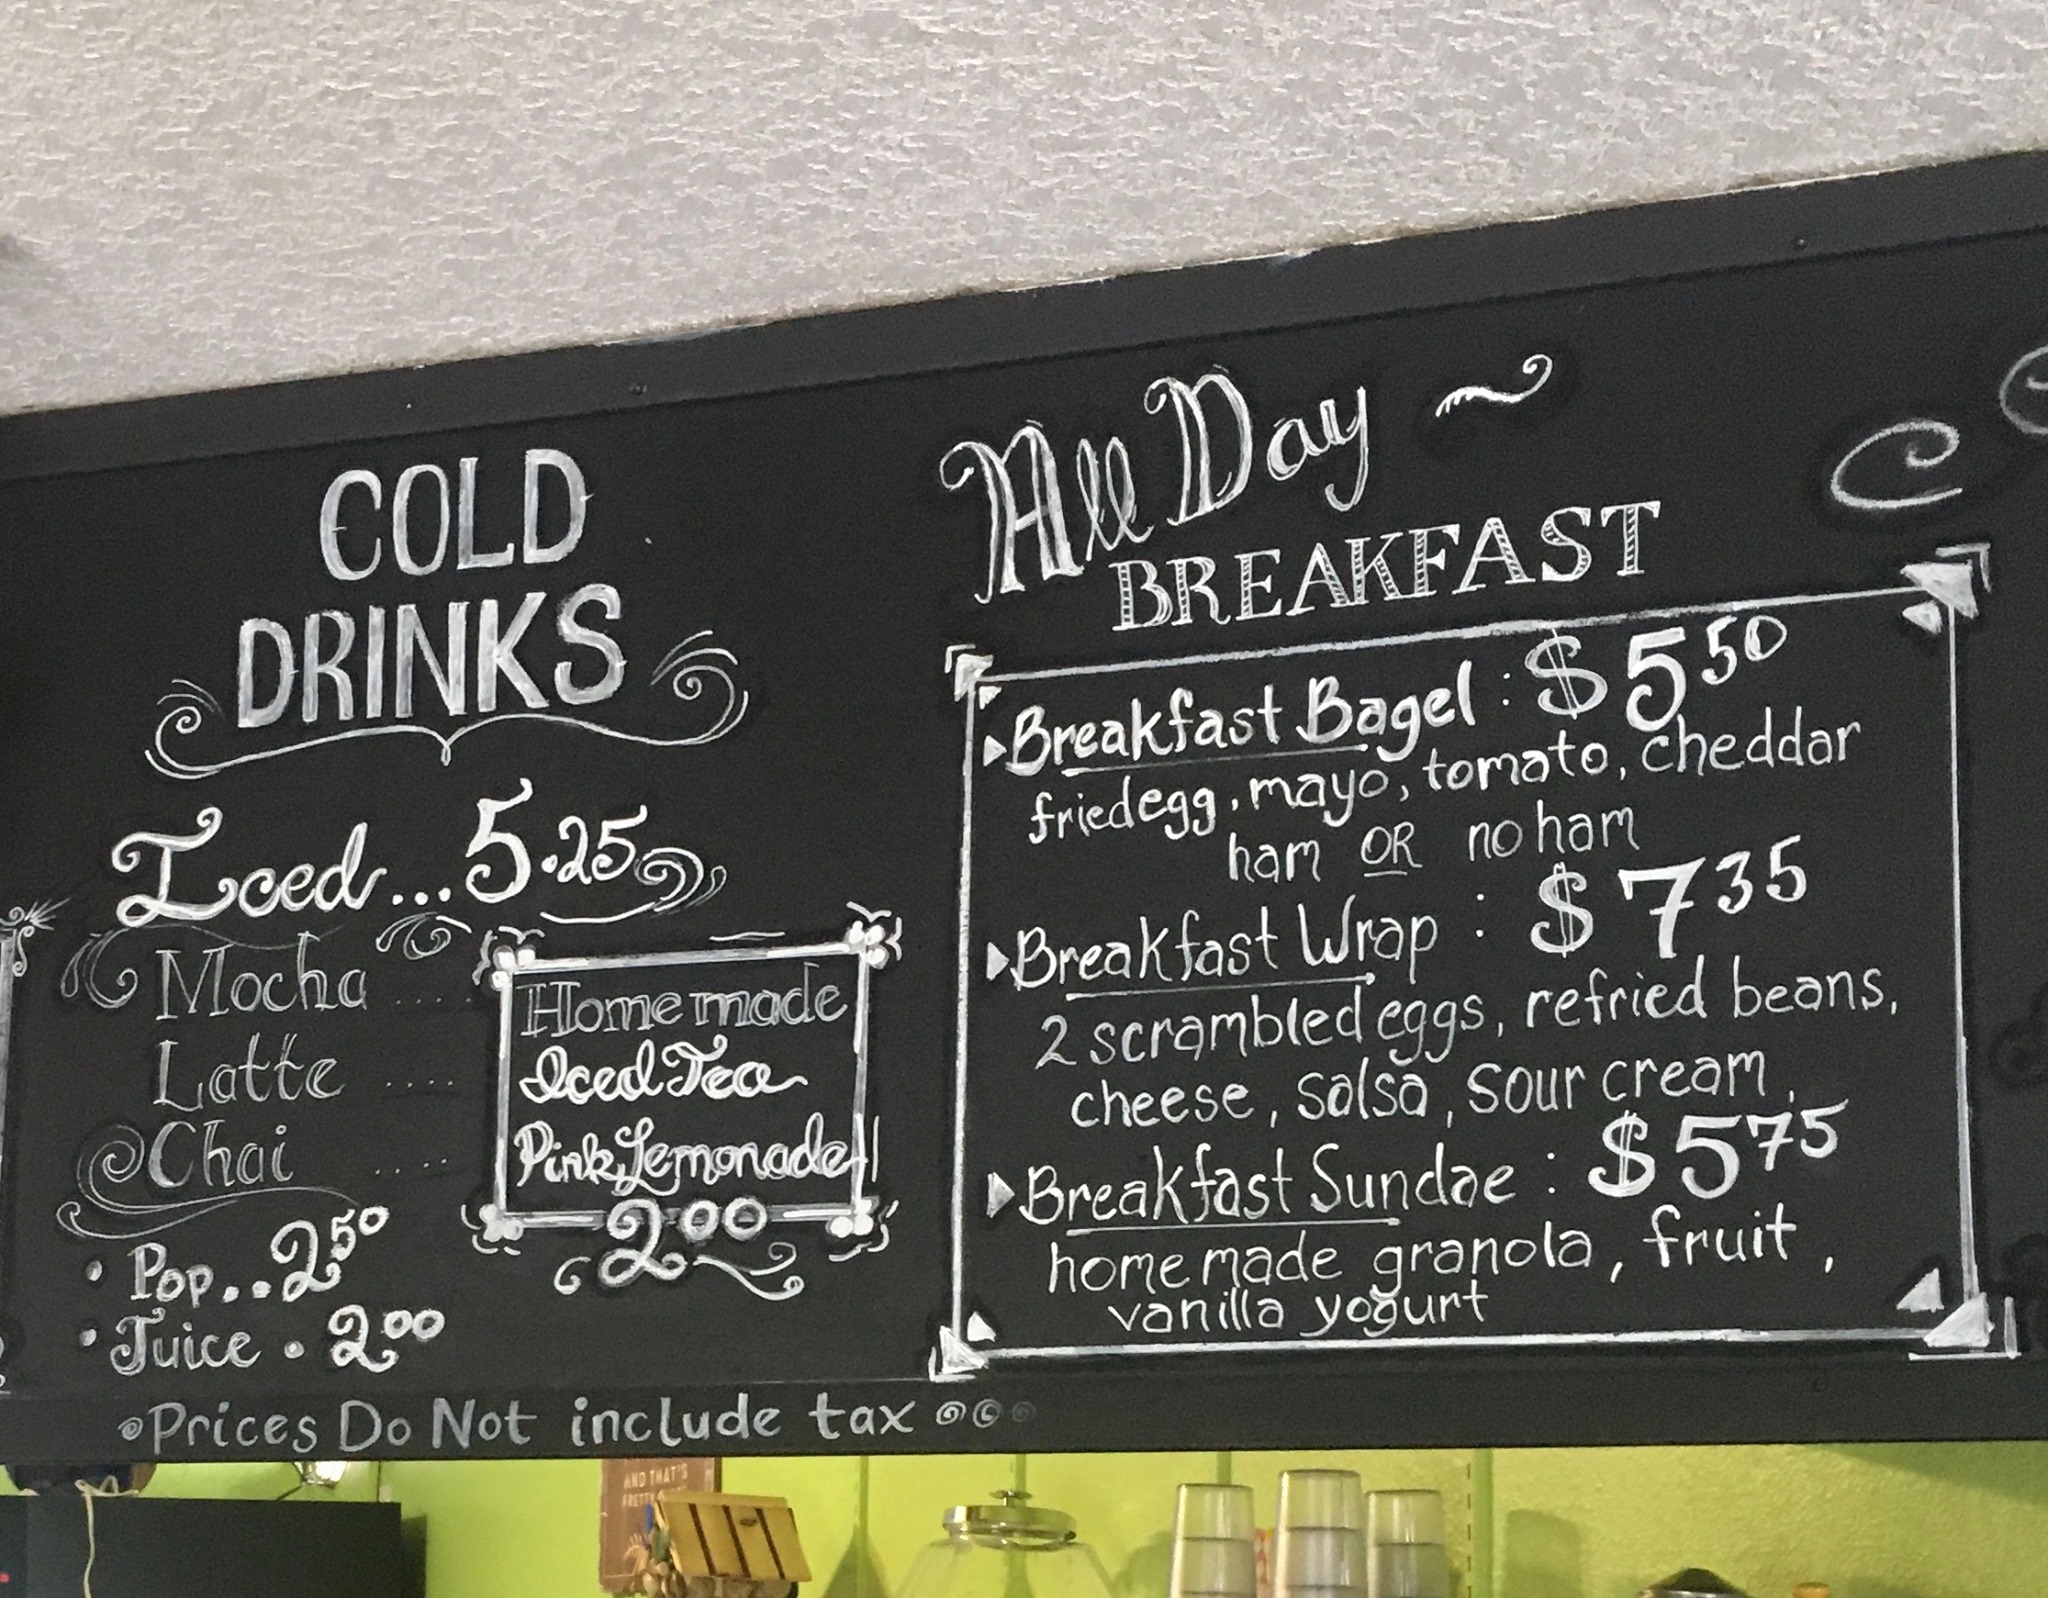 COLD
DRINKS
Iced...5.25
Mocha ....
Latte ....
Chai ....
Homemade
Iced Tea
Pink Lemonade
2.00
• Pop..2.50
• Juice . 2.00
Prices Do Not include tax
All Day
BREAKFAST
Breakfast Bagel : $5.50
fried egg, mayo, tomato, cheddar
ham OR no ham
Breakfast Wrap : $7.35
2 scrambled eggs, refried beans,
cheese, salsa, sour cream,
Breakfast Sundae : $5.75
homemade granola, fruit,
vanilla yogurt
AND THAT'S
PRETTY